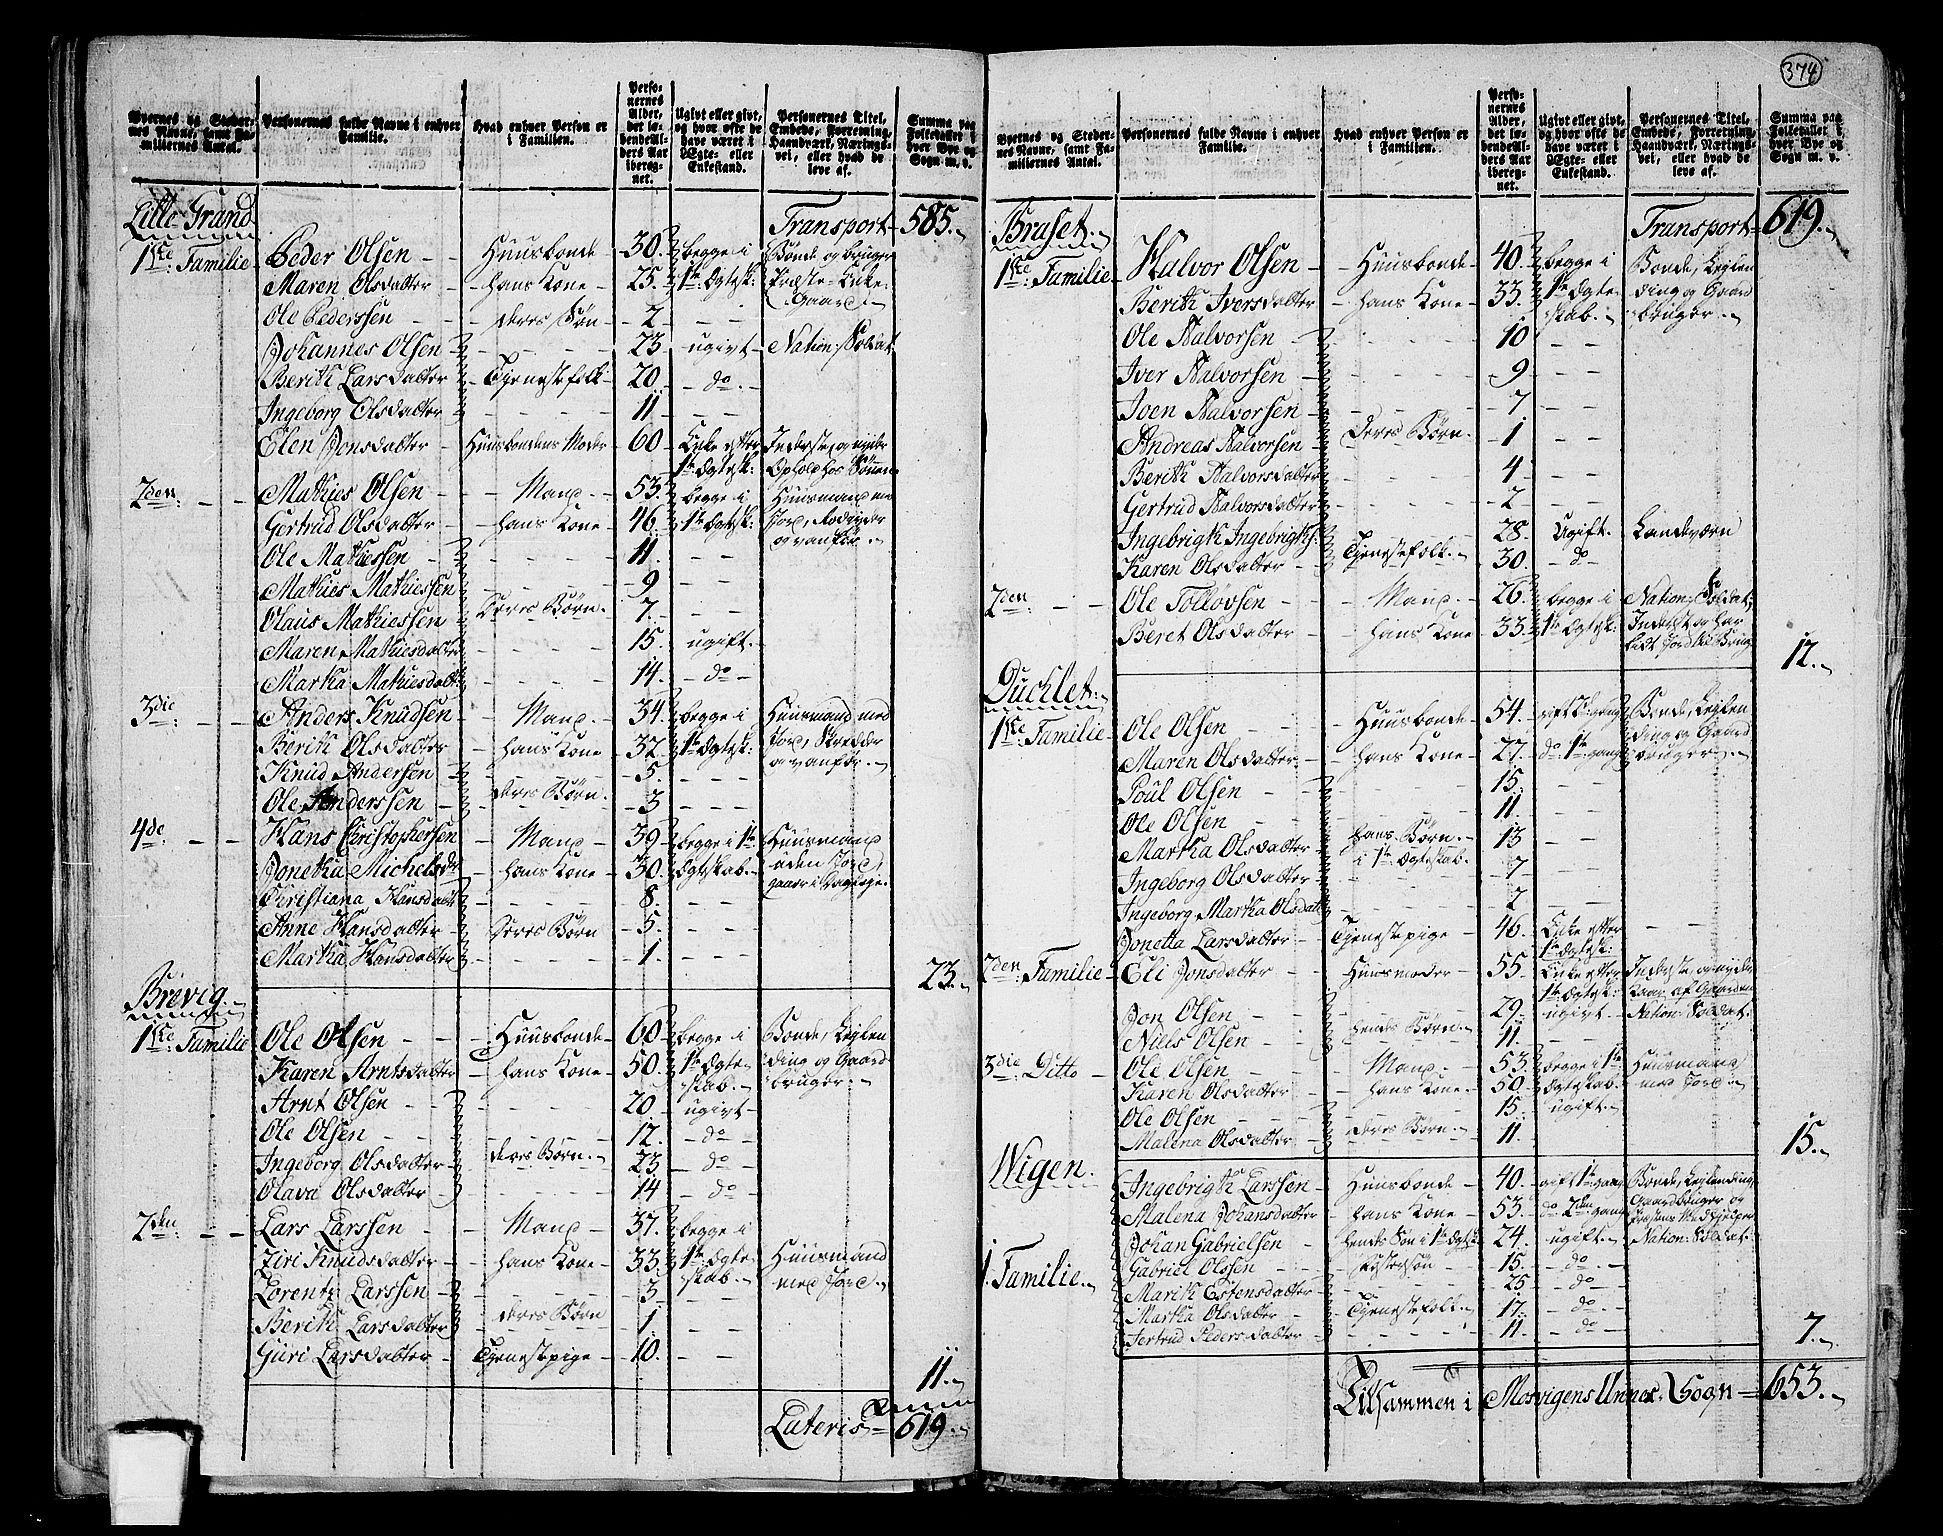 374
Byernes og Stedernes Navne, samt Familiernes Antal.
Personernes fulde Navne i enhver Familie.
Hvad enhver Person er i Familien.
Personernes Alder, det løbende Alders Aar iberegnet.
Ugivt eller givt, og hvor ofte de have været i Ægte- eller Enkestand.
Personernes Titel, Embede, Forretning, Haandværk, Næringsvei, eller hvad de leve af.
Summa paa Folketallet i hver Bye og Sogn m. v.
Lille Grand Transport 585.
1ste Familie Peder Olsen Huusbonde 30. begge i Bonde og bruger
Maren Olsdatter hans Kone 25. 1te Ægtesk: Præste-Enke-Gaard
Ole Pederssen deres Søn 2
Johannes Olsen 23 ugivt Nation: Soldat
Berith Larsdatter Tjenestefolk 20. do
Ingeborg Olsdatter 11
Elen Jonsdatter Huusbondens Moder 60 Enke efter 1te Ægtesk: Inderste, og nyder Ophold hos Sønen
2den Mathies Olsen Mand 53. begge i Huusmand med
Gertrud Olsdatter hans Kone 46. 1te Ægtesk: Jord,
Ole Mathiessen 11.
Mathies Mathiessen 9
Olaus Mathiessen Deres Børn 7.
Maren Mathiesdatter 15. ugift
Martha Mathiesdatt: 14. do
3die Anders Knudsen Mand 34. begge i Huusmand med
Berith Olsdatter hans Kone 32. 1te Ægtesk: Jord, Skredder og vanfør
Knud Andersen deres Børn 5.
Ole Anderssen 3
4de Hans Christophersen Mand 39 begge i 1te Huusmand
Jonetha Michelsd: hans Kone 30. Ægteskab. uden Jord, gaaer i Dagleje
Christiana Hansdatt: 8.
Anne Hansdatter Deres Børn 5.
Martha Hansdatter 1
23.
Brevig
1ste Familie Ole Olsen Huusbonde 60 begge i Bonde, Leylen
Karen Arntsdatter hans Kone 50. 1te Ægteskab. ding og Gaardbruger
Arnt Olsen 20 ugivt
Ole Olsen 12. do
Ingeborg Olsdatter deres Børn 23 do
Olava Olsdatter 14 do
2den Lars Larssen Mand 37. begge i
Ziri Knudsdatter hans Kone 33. 1te Ægteskab. Huusmand med Jord
Lorentz Larssen 3
Berith Larsdatter deres Børn 1
Guri Larsdatter Tjenestepige 10.
11.
Lateris 619.
Byernes og Stedernes Navne, samt Familiernes Antal.
Personernes fulde Navne i enhver Familie.
Hvad enhver Person er i Familien.
Personernes Alder, det løbende Alders Aar iberegnet.
Ugivt eller givt, og hvor ofte de have været i Ægte- eller Enkestand.
Personernes Titel, Embede, Forretning, Haandværk, Næringsvei, eller hvad de leve af.
Summa paa Folketallet i hver Bye og Sogn m. v.
Bruset Transport 619.
1ste Familie Halvor Olsen Huusbonde 40. begge i Bonde, Leylen
Berith Iversdatter hans Kone 33. 1te Ægteskab. ding og Gaardbruger
Ole Halvorsen 10
Iver Halvorsen 9
Joen Halvorsen 7
Andreas Halvorsen deres Børn. 1
Berith Halvorsdatter 4
Gertrud Halvorsdatter 2
Ingebrigth Ingebrigths: 28. Ugift Landeværn
Karen Olsdatter Tjenestefolk 30. do
2den Ole Tolløvsen Mand 26. begge i Nation: Soldat,
Beret Olsdatter hans Kone 33. 1te Ægtesk: Inderst og har lidt Jord til Brug
12.
Duchlet
1ste Familie Ole Olsen Huusbonde 54. gift 2: gang Bonde, Leylen
Maren Olsdatter hans Kone 27. do 1te gang ding og Gaardbruger
Poul Olsen 15.
Ole Olsen 11.
Martha Olsdatter hans Børn 13
Ingeborg Olsdatter i 1te Ægteskab. 7
Ingeborg Martha Olsdatt: 2
Jonetta Larsdatter Tjenestepige 46. Enke efter 1te Ægtesk:
2den Familie Eli Jonsdatter Huusmoder 55. Enke efter 1te Ægtesk: Inderste, og nyder Kaar af Gaarden
Jon Olsen 29. ugivt Nation: Soldat.
Niels Olsen hends Børn 11.
3die Ditto Ole Olsen Mand 53. begge i 1te Huusmand
Karen Olsdatter hans Kone 50. Ægteskab. med Jord
Ole Olsen 15. ugift
Malena Olsdatter deres Børn 11.
15.
Wigen.
1 Familie Ingebrigth Larssen Huusbonde 40. gift 1te gang Bonde, Leylending
Malena Johansdatter hans Kone 53. do 2den gang Gaardbruger og Præstens Medhjelper
Johan Gabrielsen hends Søn i 1te Ægtesk: 24. ugift Nation: Soldat.
Gabriel Olssen 15. do
Marith Estensdatter 25 do
Martha Olsdatter Tjenestefolk 17. do
Gertrud Pedersdatter 11. do
7.
Tilsammen i Mosvigens Annex Sogn 653.